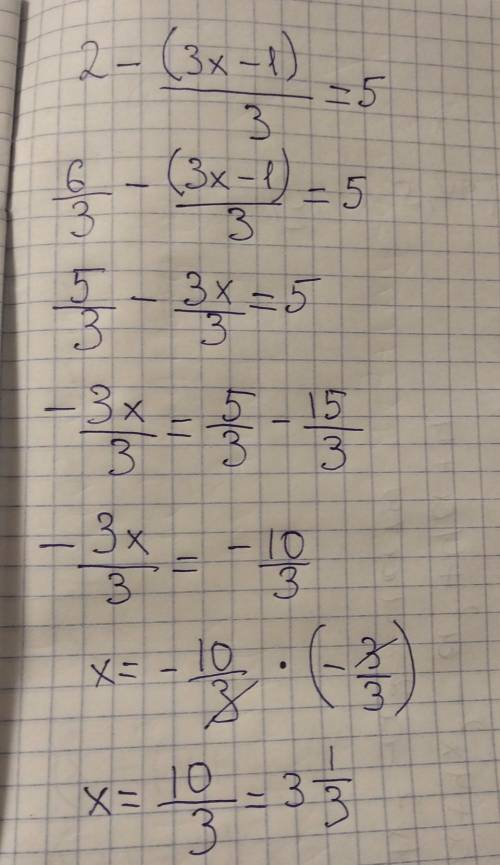 2 - (3x-1)/3 = 5
6/3 - (3x-1)/3 = 5
5/3 - 3x/3 = 5
- 3x/3 = 5/3 - 15/3
- 3x/3 = - 10/3
x = - 10/3 · (- 3/3)
x = 10/3 = 3 1/3